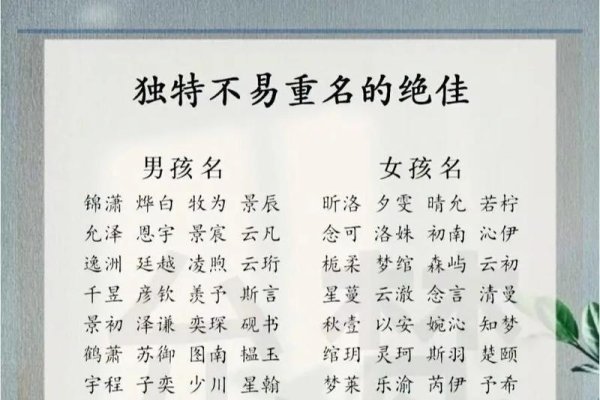 独特不易重名的绝佳
男孩名 女孩名
锦潇 烨白 牧为 景辰 昕洛 夕雯 晴允 若柠
允泽 恩宇 景宸 云凡 念可 洛姝 初南 沁伊
逸洲 廷越 凌煦 云珩 栀柔 梦绾 森屿 云初
千昱 彦钦 羡予 斯言 星蔓 云澈 念言 清曼
景初 泽谦 奕琛 砚书 秋壹 以安 婉沁 知梦
鹤萧 苏御 图南 揾玉 绾玥 灵珂 斯羽 楚颐
宇程 子奕 少川 星翰 梦莱 乐渝 芮伊 予希